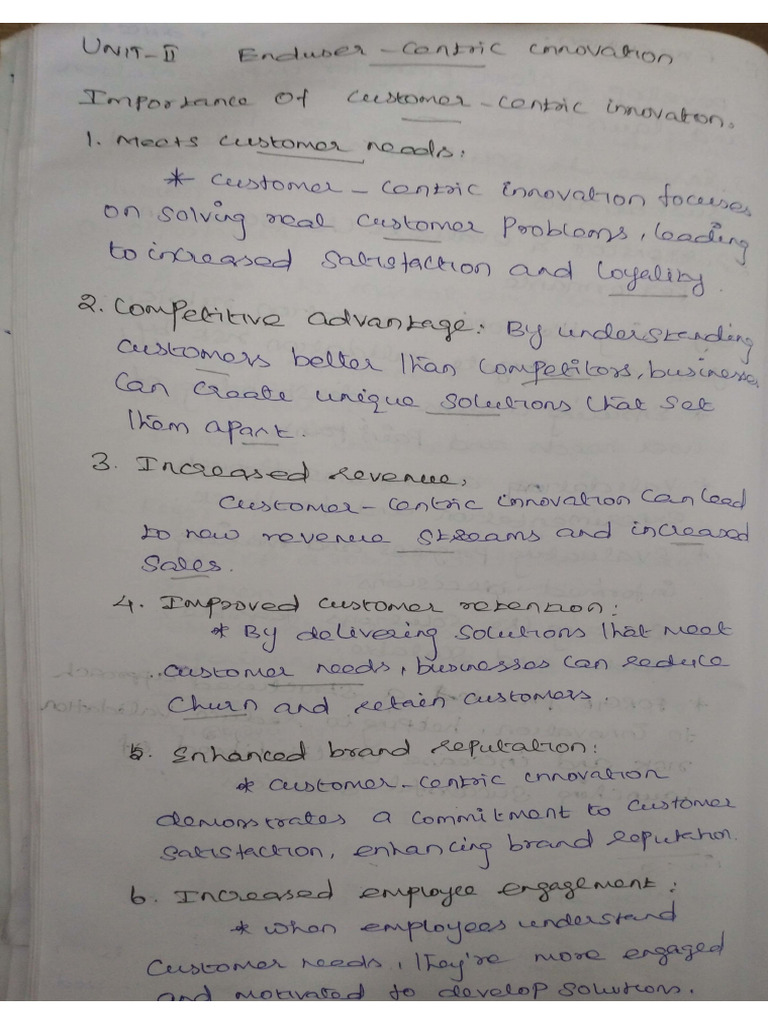 UNIT-II Enduser-centric innovation
Importance of customer-centric innovation.
1. Meets customer needs:
* customer-centric innovation focuses
on solving real customer problems, leading
to increased satisfaction and loyality.
2. Competitive advantage: By understanding
customers better than competitors, businesses
can create unique solutions that set
them apart.
3. Increased revenue,
customer-centric innovation can lead
to new revenue streams and increased
sales.
4. Improved customer retention:
* By delivering solutions that meet
customer needs, businesses can reduce
churn and retain customers.
5. Enhanced brand reputation:
* customer-centric innovation
demonstrates a commitment to customer
satisfaction, enhancing brand reputation.
6. Increased employee engagement:
* when employees understand
customer needs, they're more engaged
and motivated to develop solutions.